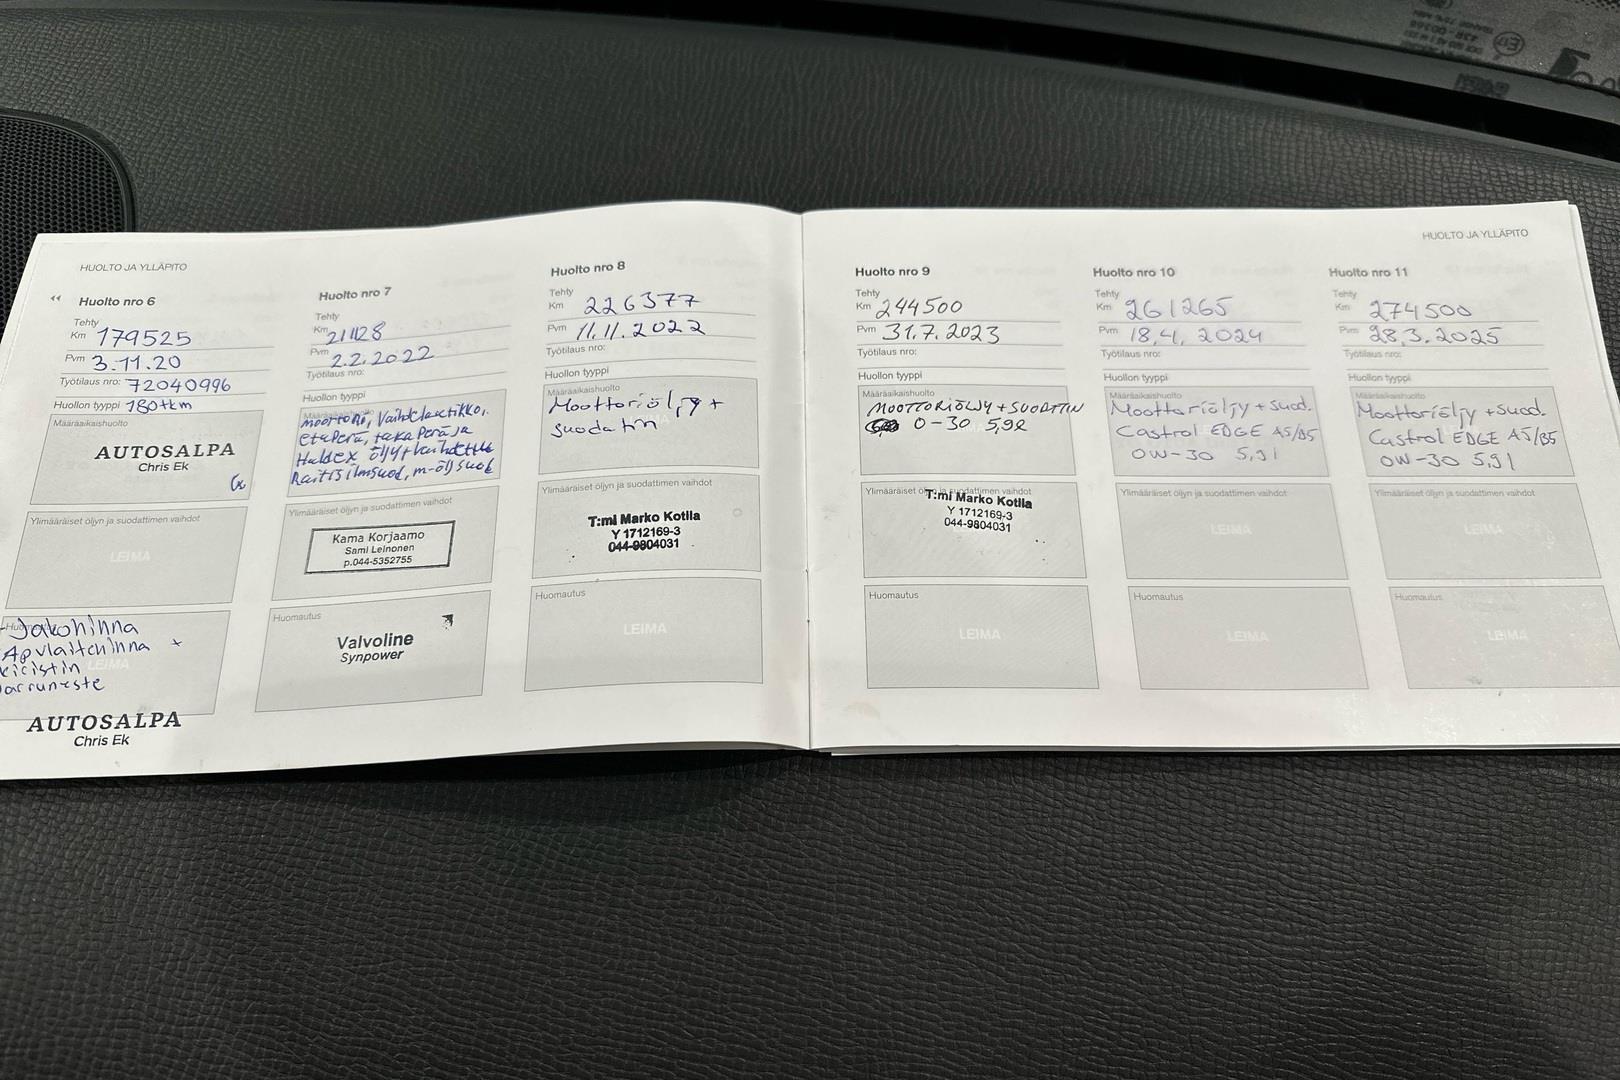 HUOLTO JA YLLÄPITO
Huolto nro 6
Tehty
Km 179525
Pvm 3.11.20
Työtilaus nro: 72040996
Huollon tyyppi 180tkm
Määräaikaishuolto
AUTOSALPA
Chris Ek
Ylimääräiset öljyn ja suodattimen vaihdot
LEIMA
Jakohihna
Apulaitehihna +
LEIMA
AUTOSALPA
Chris Ek
Huolto nro 7
Tehty
Km 211128
Pvm 2.2.2022
Työtilaus nro:
Huollon tyyppi
Määräaikaishuolto
moottori, Vaihdelaatikko,
etuperä, takaperä ja
Haldex öljyt vaihdettu
Raitisilmsuod, m-öljsuod
Ylimääräiset öljyn ja suodattimen vaihdot
Kama Korjaamo
Sami Leinonen
p.044-5352755
Huomautus
Valvoline
Synpower
Huolto nro 8
Tehty
Km 226377
Pvm 11.11.2022
Työtilaus nro:
Huollon tyyppi
Määräaikaishuolto
Moottoriöljy +
suodatin
Ylimääräiset öljyn ja suodattimen vaihdot
T:mi Marko Kotila
Y 1712169-3
044-9804031
Huomautus
LEIMA
HUOLTO JA YLLÄPITO
Huolto nro 9
Tehty
Km 244500
Pvm 31.7.2023
Työtilaus nro:
Huollon tyyppi
Määräaikaishuolto
MOOTTORIÖLJY + SUODATTIN
0-30 5,9l
Ylimääräiset öljyn ja suodattimen vaihdot
T:mi Marko Kotila
Y 1712169-3
044-9804031
Huomautus
LEIMA
Huolto nro 10
Tehty
Km 261265
Pvm 18.4. 2024
Työtilaus nro:
Huollon tyyppi
Määräaikaishuolto
Moottoriöljy + suod.
Castrol EDGE A5/B5
0W-30 5,9l
Ylimääräiset öljyn ja suodattimen vaihdot
LEIMA
Huomautus
LEIMA
Huolto nro 11
Tehty
Km 274500
Pvm 28.3.2025
Työtilaus nro:
Huollon tyyppi
Määräaikaishuolto
Moottoriöljy + suod.
Castrol EDGE A5/B5
0W-30 5,9l
Ylimääräiset öljyn ja suodattimen vaihdot
LEIMA
Huomautus
LEIMA